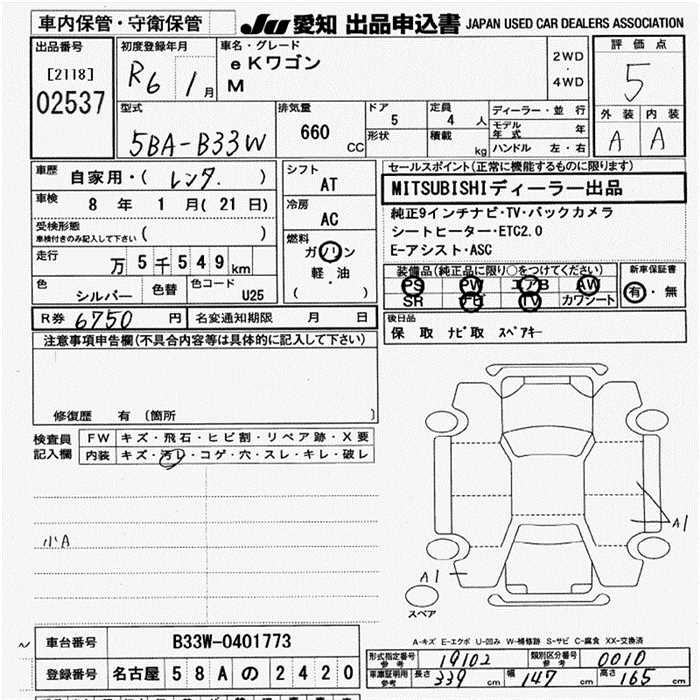 車内保管・守衛保管
JU 愛知 出品申込書 JAPAN USED CAR DEALERS ASSOCIATION
出品番号
[2118]
02537
初度登録年月
R6 1月
車名・グレード
eKワゴン
M
2WD
・
4WD
評価点
5
外装 内装
A A
型式
5BA-B33W
排気量
660
CC
ドア
5
定員
4 人
形状
積載
kg
ディーラー・並行
モデル年式 年
ハンドル 左・右
車歴
自家用・( レンタ. )
車検
8 年 1 月( 21 日)
受検形態
車検付きのみ記入して下さい ( )
走行
万 5 千 5 4 9 km
色
シルバー
色替
色コード
U25
シフト
AT
冷房
AC
燃料
ガソリン
軽・油
( )
セールスポイント(正常に機能するものに限ります)
MITSUBISHIディーラー出品
純正9インチナビ・TV・バックカメラ
シートヒーター・ETC2.0
E-アシスト・ASC
装備品(純正品に限り○をつけてください)
PS PW エアB AW
SR ナビ TV カワシート
新車保証書
有・無
R券 6750 円
名変通知期限 月 日
後日品
保 取 ナビ取 スペアキー
注意事項申告欄(不具合内容等は具体的に記入して下さい)
修復歴 有 〔箇所 〕
検査員
記入欄
FW キズ・飛石・ヒビ割・リペア跡・X要
内装 キズ・汚レ・コゲ・穴・スレ・キレ・破レ
小A
A1
A1
スペア
車台番号 B33W-0401773
登録番号 名古屋 5 8 A の 2 4 2 0
A-キズ E-エクボ U-凹み W-補修跡 S-サビ C-腐食 XX-交換済
形式指定番号
参考
19102
類別区分番号
参考
0010
車庫証明用
参考
長さ 339 cm
幅 147 cm
高さ 165 cm